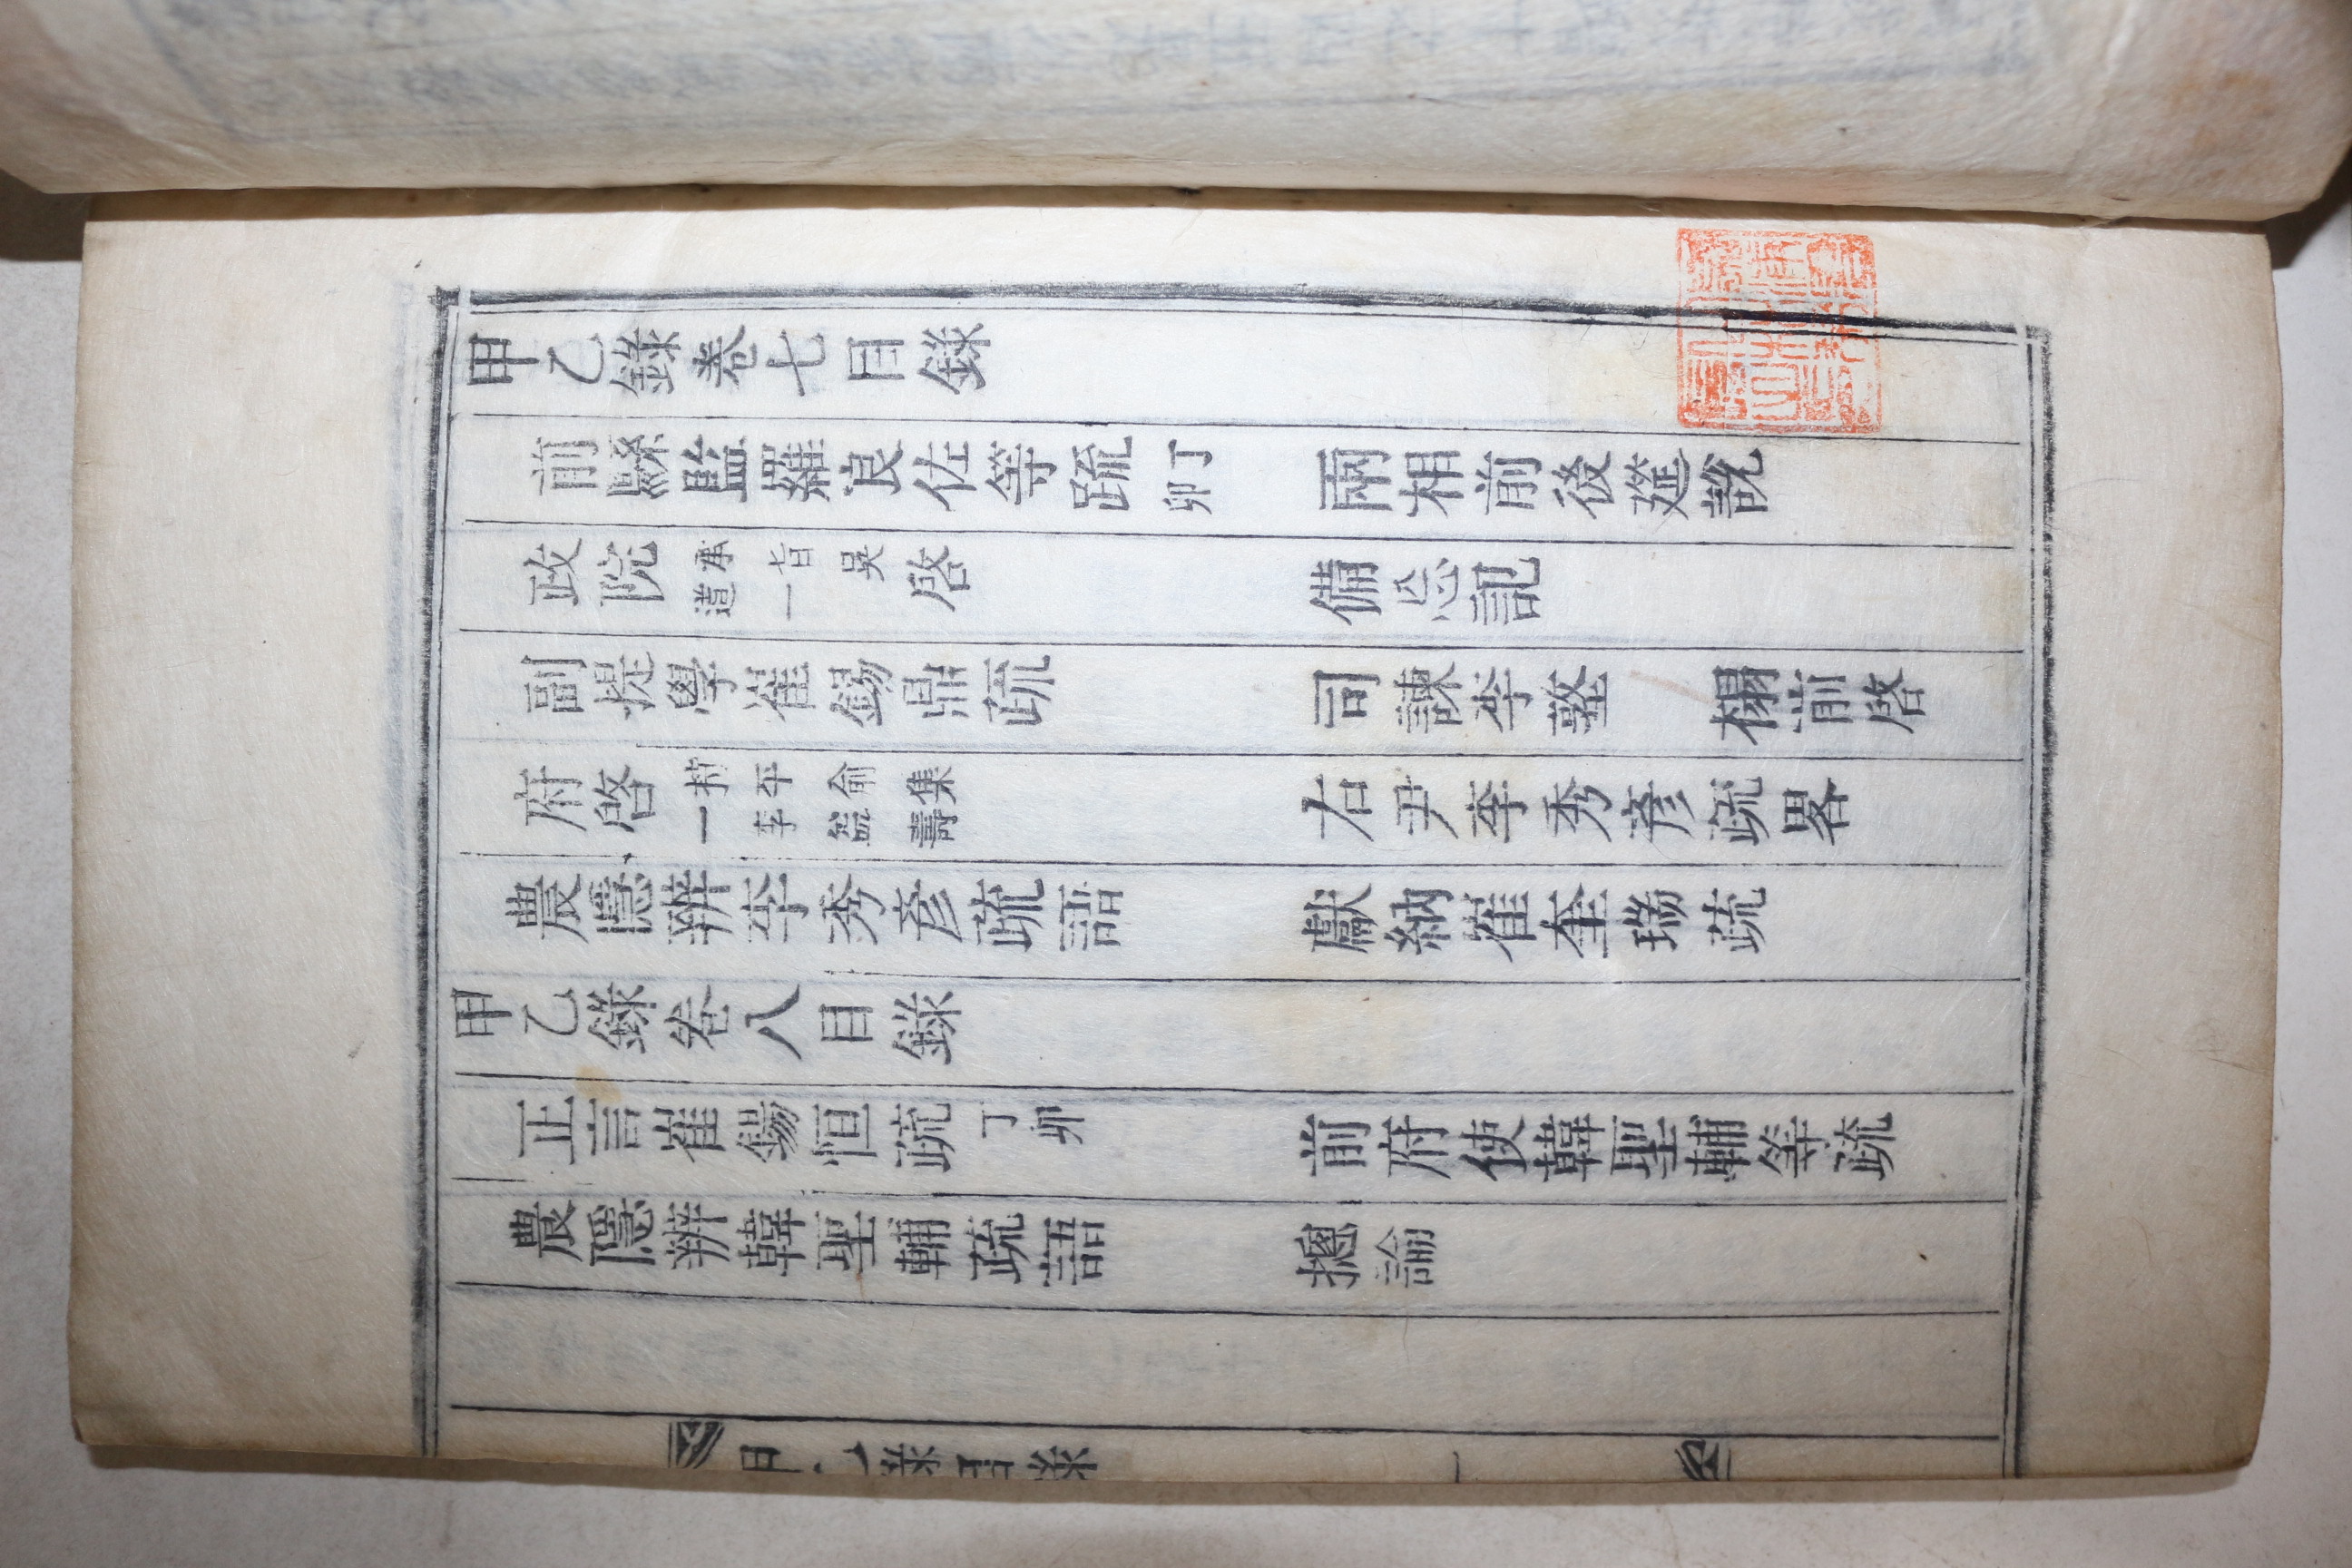 甲乙錄卷七目錄
前縣監羅良佐等疏丁卯 兩相前後筵說
政院承旨吳道一啓 備忘記
副提學崔錫鼎疏 司諫李墪 榻前啓
府啓持平俞集一李益壽 右尹李秀彥疏畧
農隱辨李秀彥疏語 獻納崔奎瑞疏
甲乙錄卷八目錄
正言崔錫恒疏丁卯 前府使韓聖輔等疏
農隱辨韓聖輔疏語 摠論